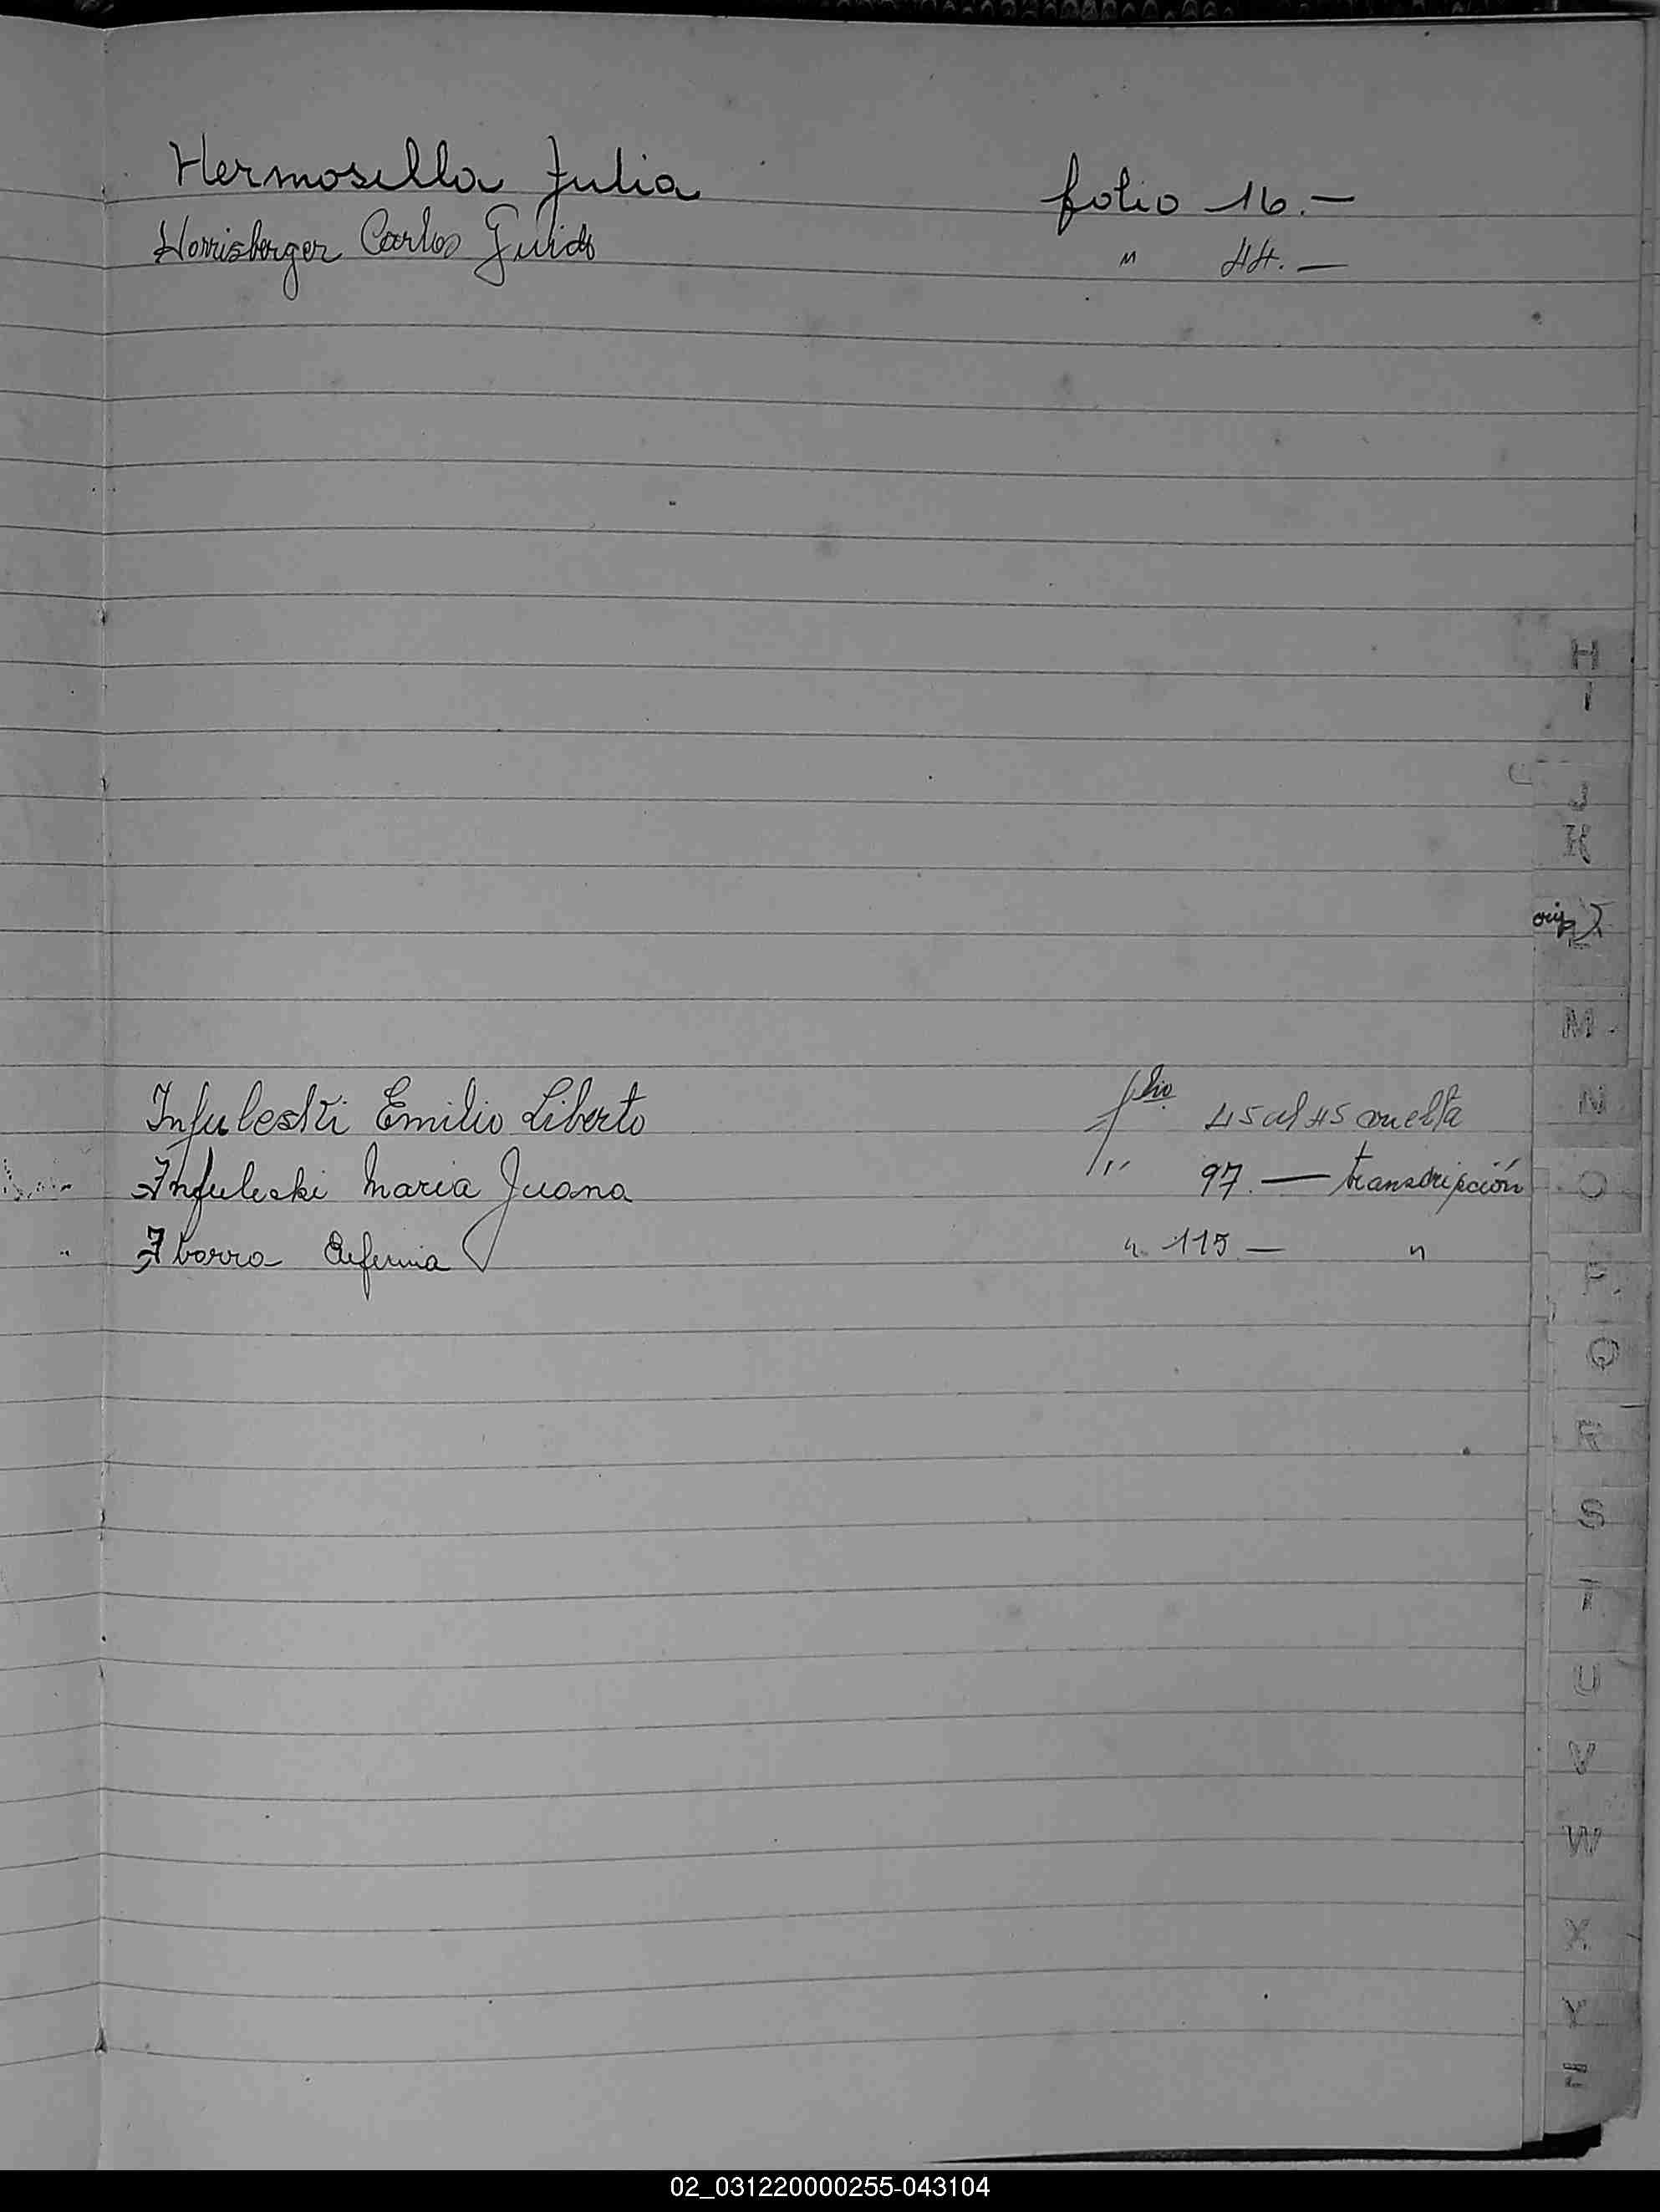 Hermosilla Julia folio 16.—
Horrisberger Carlos Guido " 44.—
H
I
J
K
L
M
Infuleski Emilio Liberto folio 45 al 45 vuelta
N
Infuleski Maria Juana " 97.— transcripción
O
Ibarra Eufemia " 115— "
P
Q
R
S
T
U
V
W
X
Y
Z
02_031220000255-043104